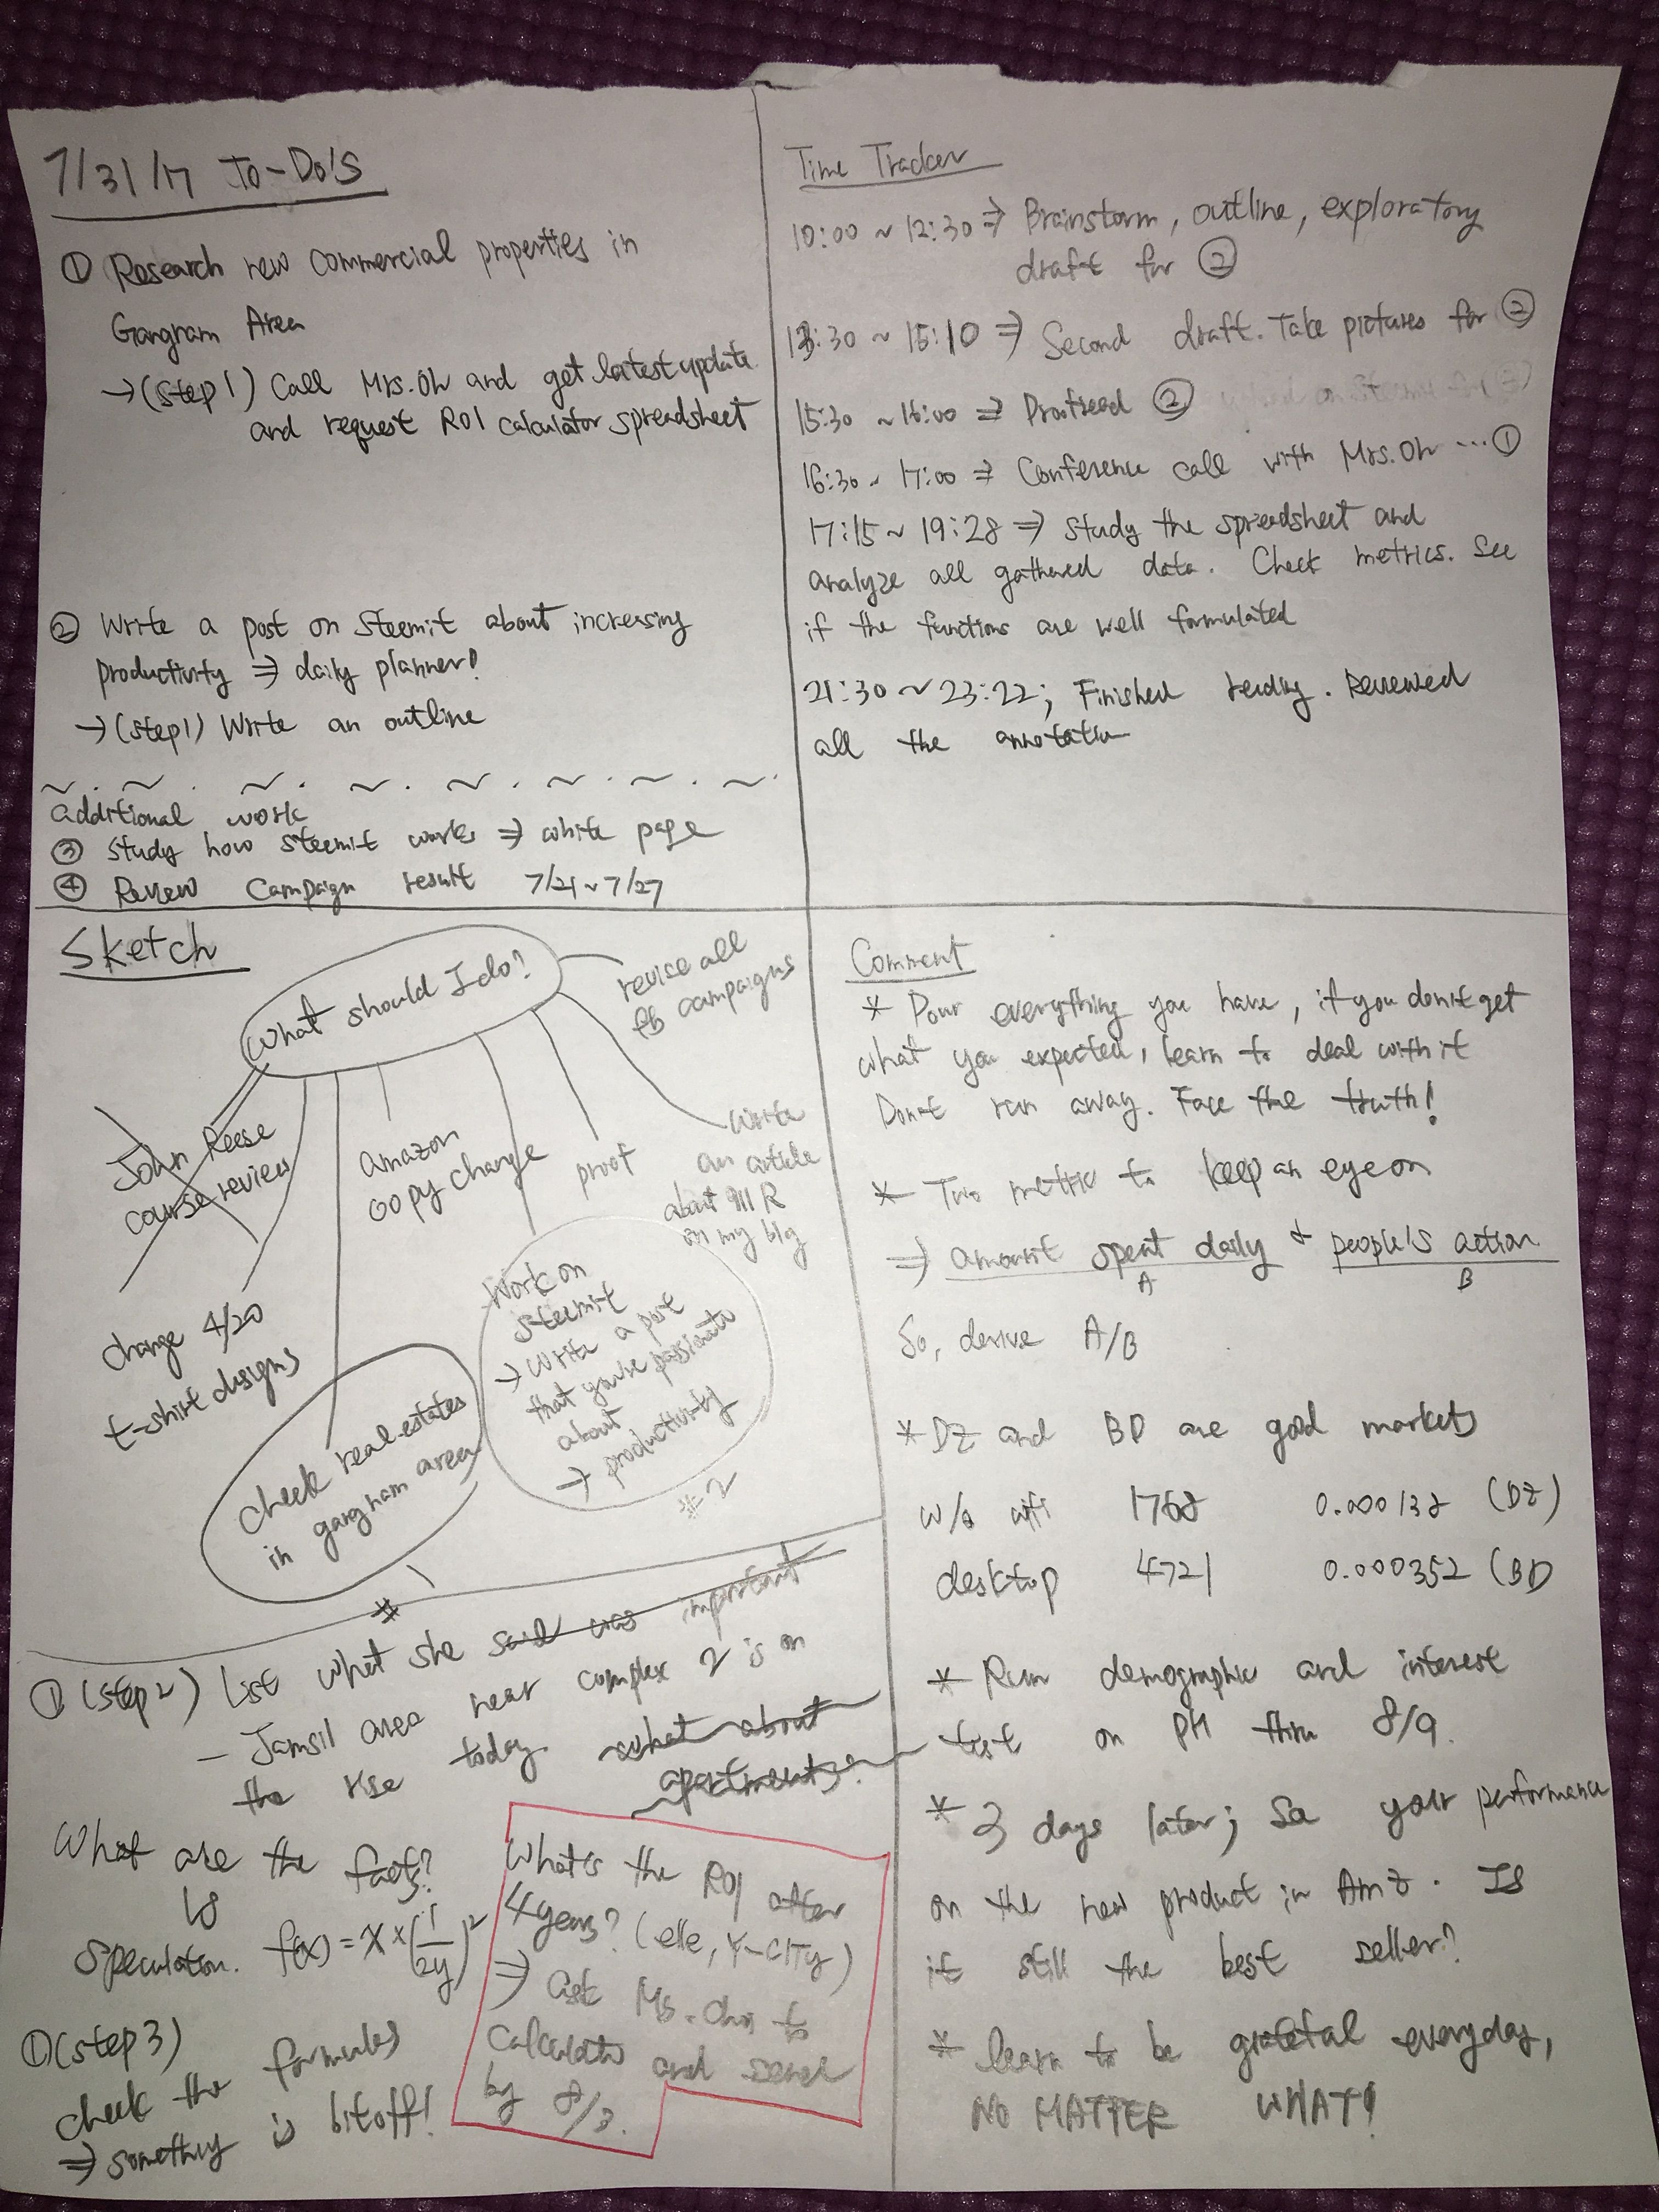 7/31/17 To-Do's
① Research new commercial properties in
Gangnam Area
→(step 1) Call Mrs.Oh and get latest update
and request ROI calculator spreadsheet
② Write a post on Steemit about increasing
productivity ⇒ daily planner!
→(step1) Write an outline
~ . ~ . ~ . ~ . ~ . ~ . ~ . ~ .
additional work
③ Study how steemit works ⇒ white page
④ Review Campaign result 7/21~7/27
Time Tracker
10:00 ~ 12:30 ⇒ Brainstorm, outline, exploratory
draft for ②
13:30 ~ 15:10 ⇒ Second draft. Take pictures for ②
15:30 ~ 16:00 ⇒ Proofread ②
16:30 ~ 17:00 ⇒ Conference call with Mrs.Oh ...①
17:15 ~ 19:28 ⇒ Study the spreadsheet and
analyze all gathered data. Check metrics. See
if the functions are well formulated
21:30 ~ 23:22; Finished reading. Reviewed
all the annotation
Sketch
What should I do?
revise all
fb campaigns
John Reese
course review
amazon
copy change
proof
write
an article
about 911 R
on my blg
change 4/20
t-shirt designs
check real estates
in gangnam area
#1
Work on
steemit
→ write a post
that you're passionate
about
→ productivity
#2
① (step2) List what she said was important
- Jamsil area near complex 2 is on
the rise today. what about
apartments?
What are the facts?
↳
Speculation. f(x) = x × (1/2y)²
①(step 3)
check the formulas
⇒ something is bit off!
What's the ROI after
4 years? (elle, Y-CITY)
⇒ ask Ms. Choi to
calculate and send
by 8/3.
Comment
* Pour everything you have, if you don't get
what you expected, learn to deal with it
Don't run away. Face the truth!
* Two metric to keep an eye on
⇒ amount spent daily + people's action
A B
So, derive A/B
* DZ and BD are good markets
w/o wifi 1768 0.000138 (DZ)
desktop 4721 0.000352 (BD
* Run demographic and interest
test on PH thru 8/9.
* 3 days later; See your performance
on the new product in AmZ. Is
it still the best seller?
* learn to be grateful everyday,
NO MATTER WHAT!